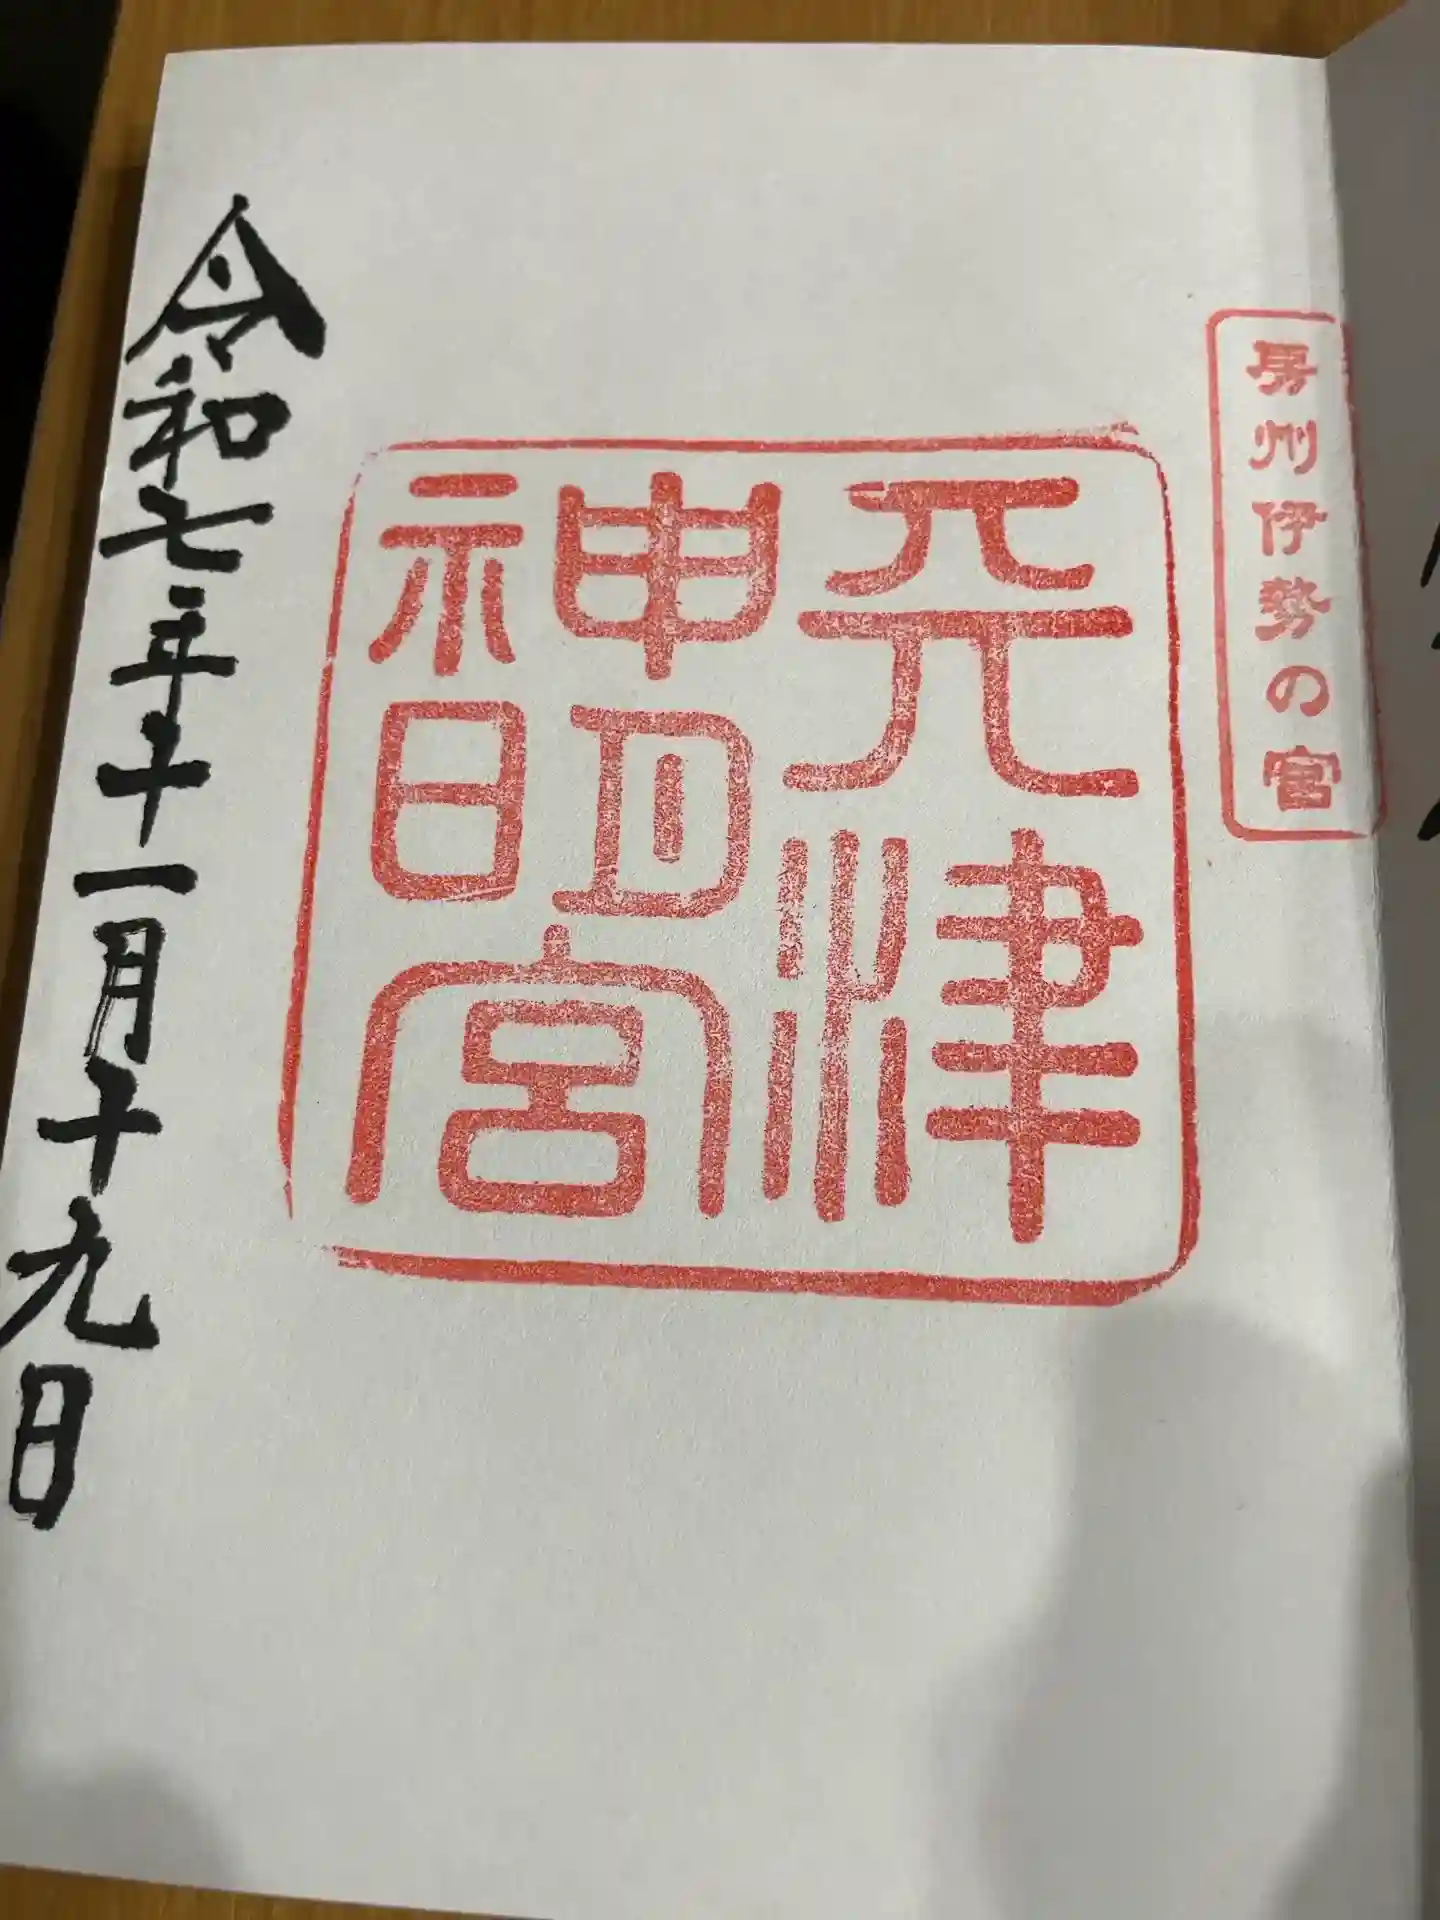 房州伊勢の宮
天津
神明宮
令和七年十一月十九日